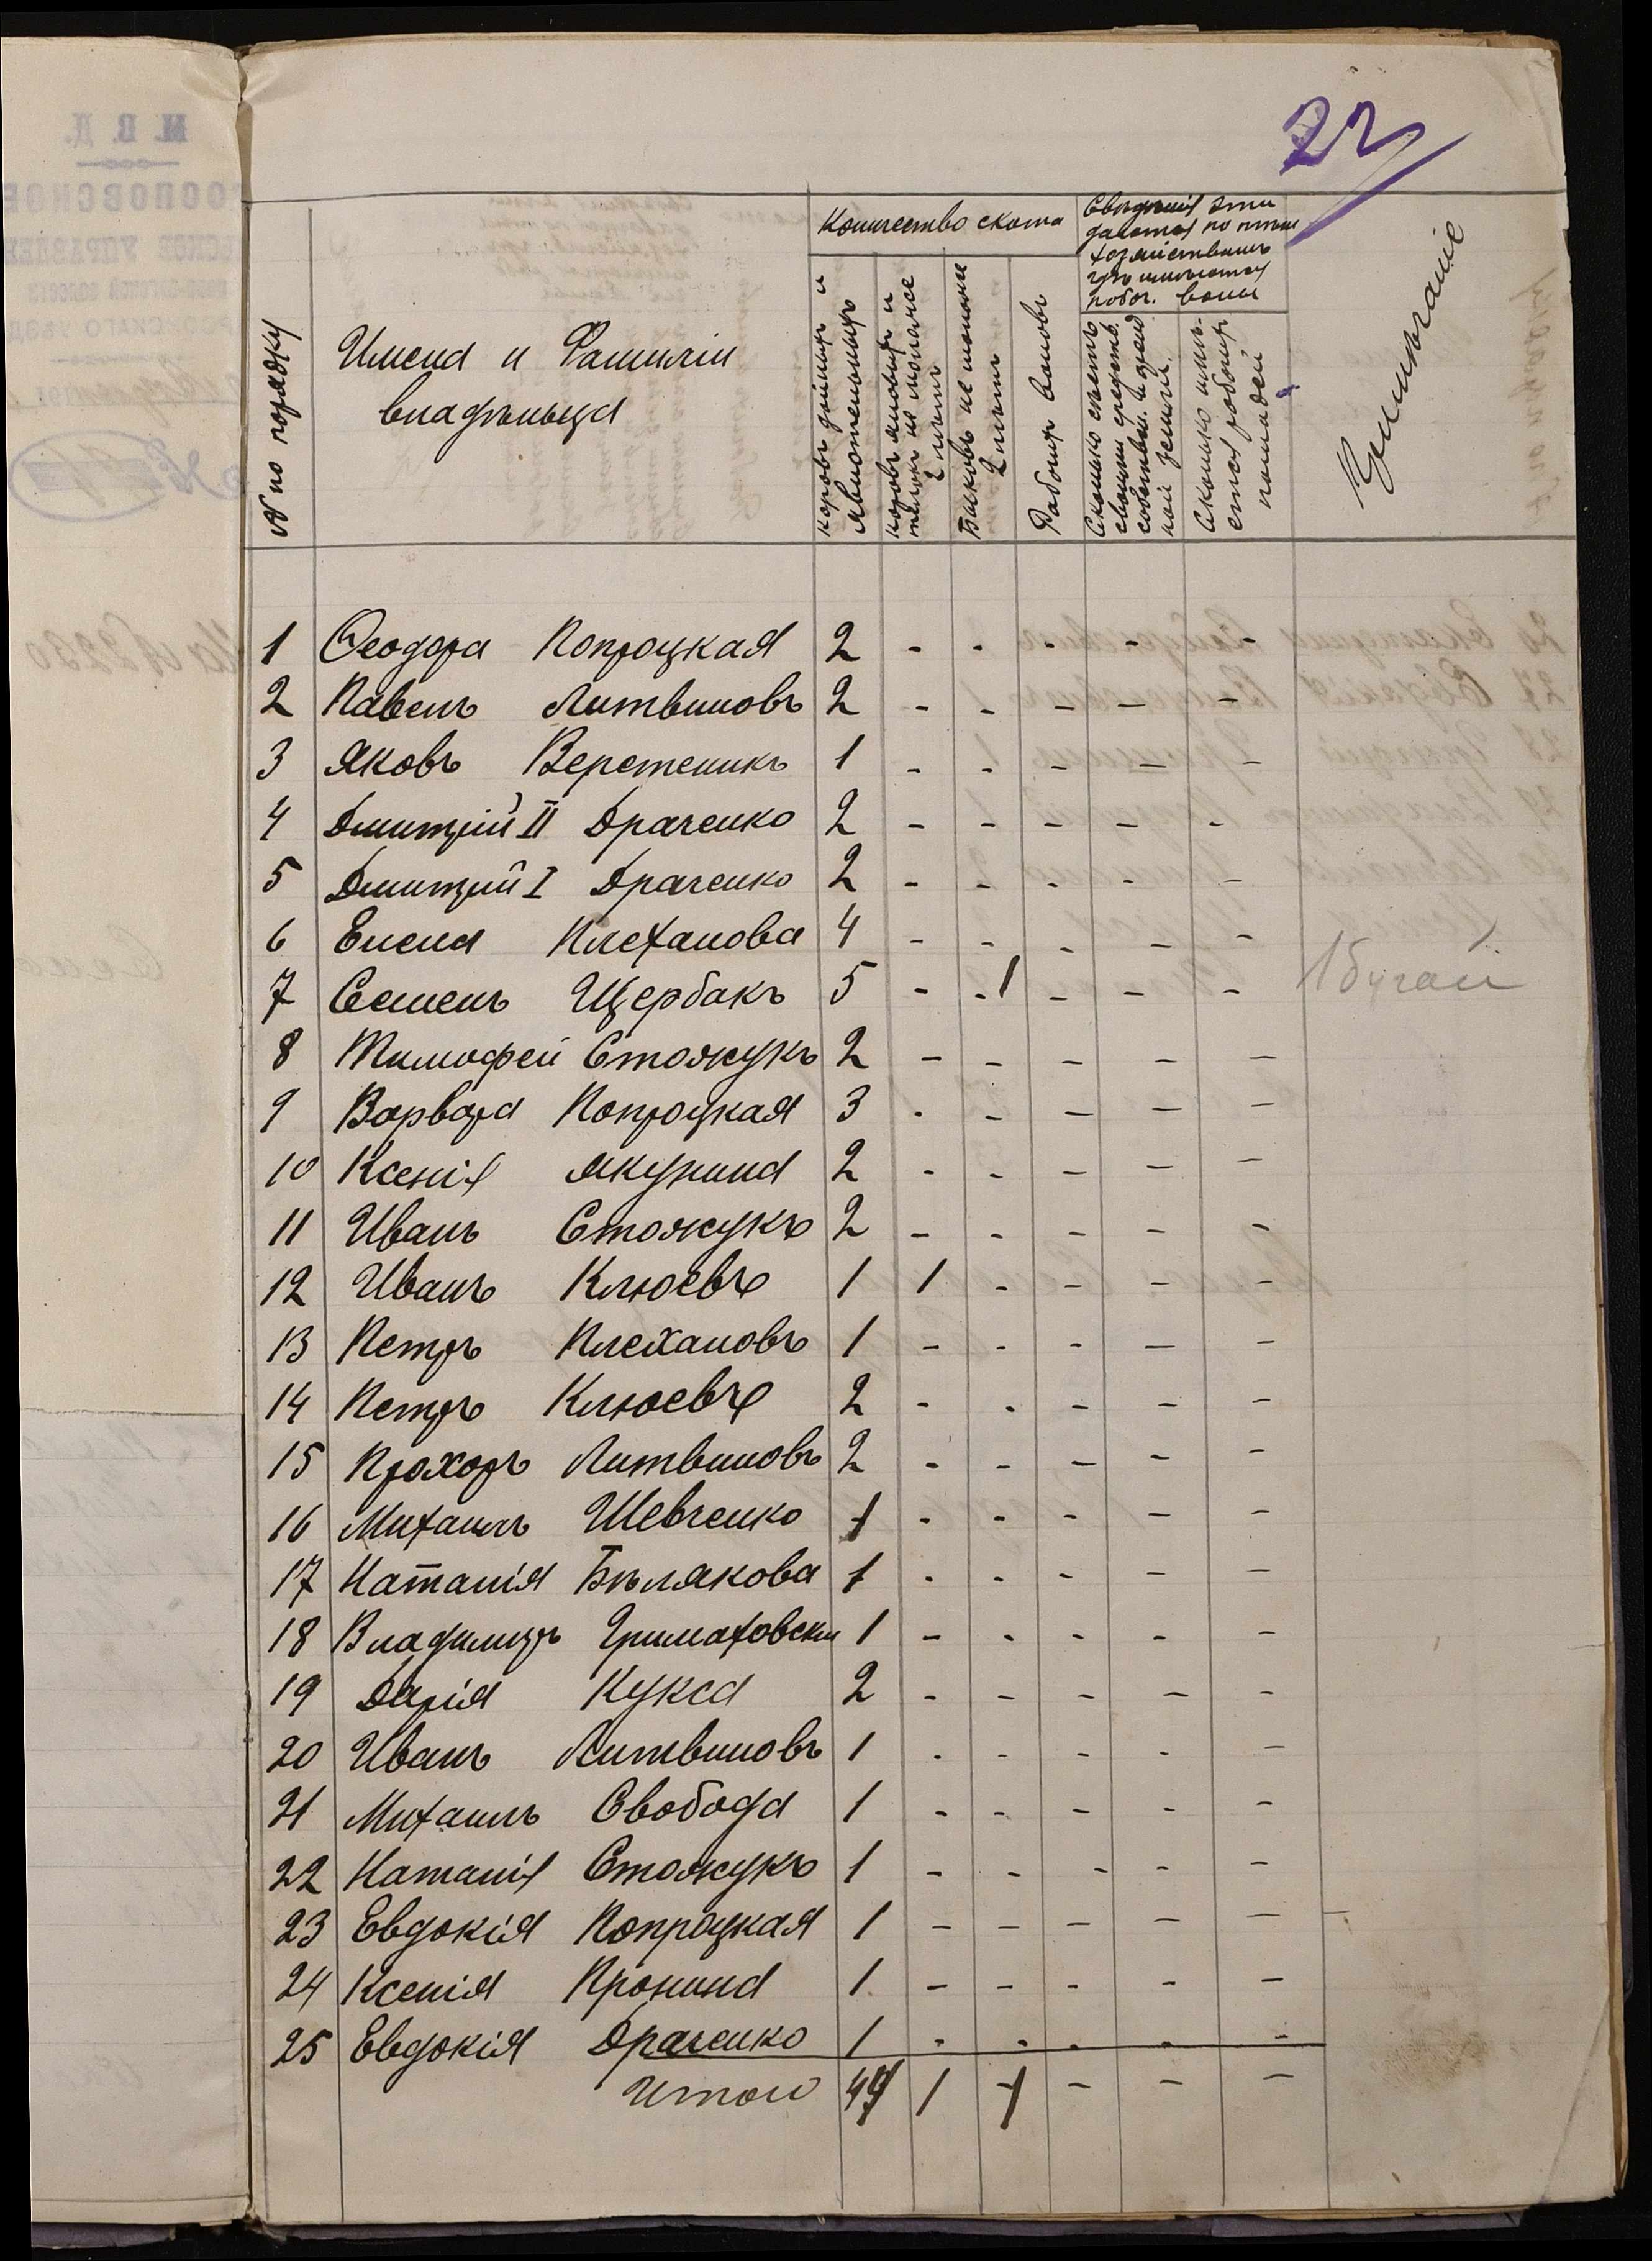 22
№ по порядку
Имена и Фамиліи
владѣльца
Количество скота
коровъ дойныхъ и
яловыхъ и
телокъ не моложе
2 лѣтъ
Быковъ не моложе
2 лѣтъ
Рабочихъ воловъ
Свѣденія эти
даются по тѣмъ
хозяйствамъ
гдѣ имѣются
рабоч. волы
Сколько
своими средств.
собствен. и аренд
ной земли.
Сколько имѣ-
ется рабочихъ
лошадей
Примѣчаніе
1 Ѳеодора Попроцкая 2 - - - - -
2 Павелъ Литвиновъ 2 - - - - -
3 Яковъ Веретеникъ 1 - - - - -
4 Дмитрій II Драченко 2 - - - - -
5 Дмитрий I Драченко 2 - - - - -
6 Елена Плеханова 4 - - - - -
7 Семенъ Щербакъ 5 - - 1 - - - 1 бугай
8 Тимофей Стожукъ 2 - - - - -
9 Варвара Попроцкая 3 - - - - -
10 Ксенія Якунина 2 - - - - -
11 Иванъ Стожукъ 2 - - - - -
12 Иванъ Клюевъ 1 1 - - - -
13 Петръ Плехановъ 1 - - - - -
14 Петръ Клюевъ 2 - - - - -
15 Прохоръ Литвиновъ 2 - - - - -
16 Михаилъ Шевченко 1 - - - - -
17 Наталія Бѣлякова 1 - - - - -
18 Владимиръ Гримаховски 1 - - - - -
19 Дарія Кукса 2 - - - - -
20 Иванъ Литвиновъ 1 - - - - -
21 Михаилъ Свобода 1 - - - - -
22 Наталія Стожукъ 1 - - - - -
23 Евдокія Попроцкая 1 - - - - - -
24 Ксенія Пронина 1 - - - - -
25 Евдокія Драченко 1 - - - - -
Итого 1 1 - - -